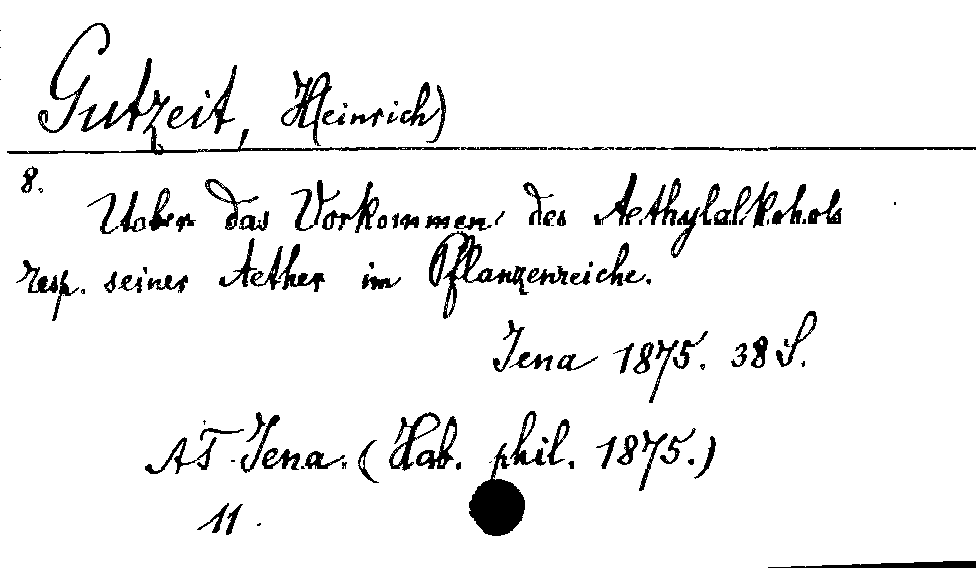 Gutzeit, H(einrich)
8.
Ueber das Vorkommen des Aethylalkohols
resp. seiner Aether im Pflanzenreiche.
Jena 1875. 38 S.
AT Jena. (Hab. phil. 1875.)
11.